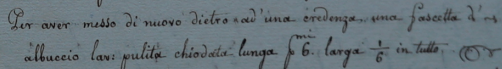 Per aver messo di nuovo dietro ad' una credenza, una fascetta d'
albuccio lav: pulita chiodata lunga p mi 6. larga 1/6 in tutto